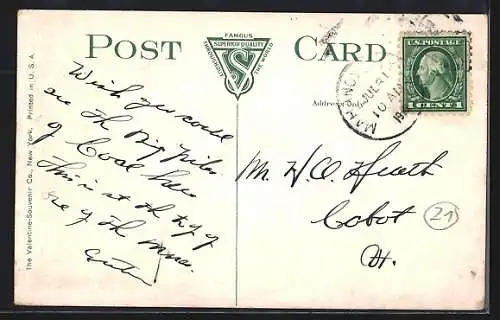 POST CARD
FAMOUS
SUPERIOR QUALITY
THROUGHOUT THE WORLD
VS
Address Only
MAHANOY
JUL 21
10 AM
19
U.S. POSTAGE
1 CENT 1
Wish you could
see the Big Piles
of Coal here
This is at the top of
one of the mines
Mr. W. O. Heath
Cobot
Vt.
21
The Valentine-Souvenir Co., New York. Printed in U.S.A.